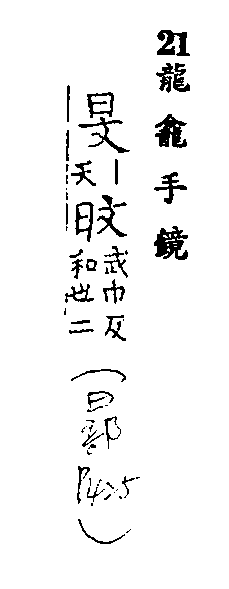 21 龍龕手鏡
旻｜天旼武巾反和也二（日部 P425）